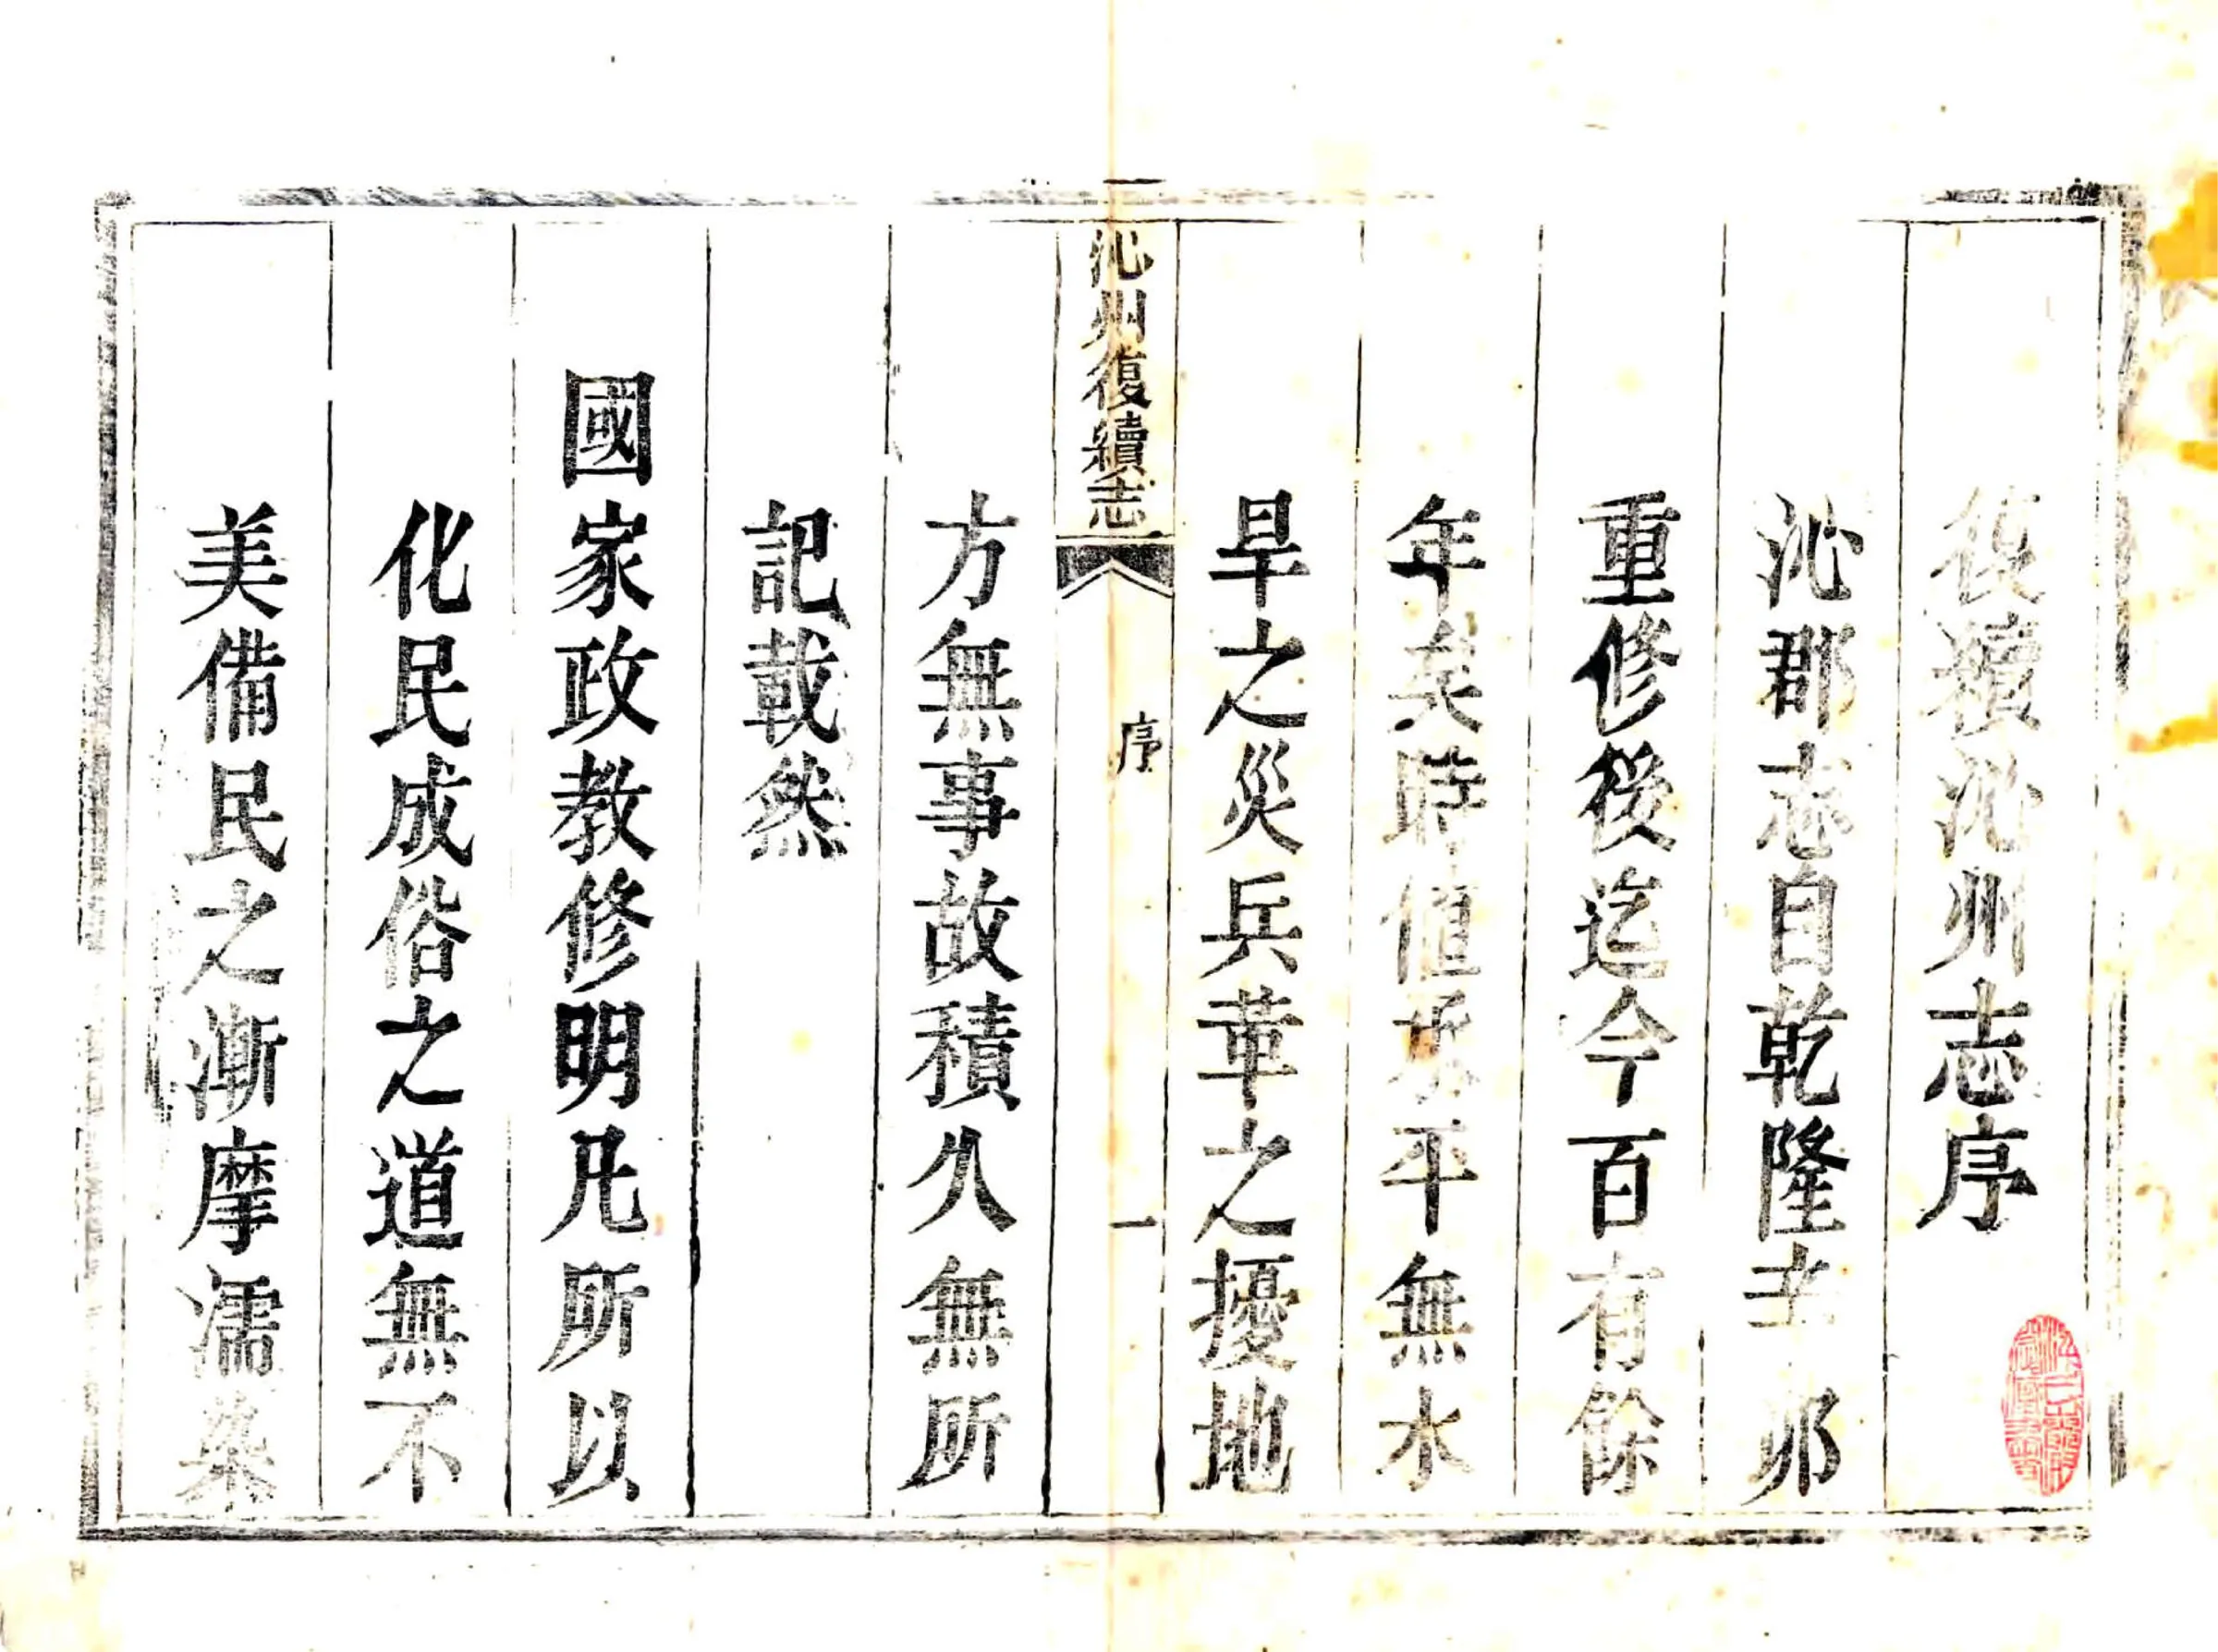 復續沁州志序
沁郡志自乾隆辛卯
重修後迄今百有餘
年矣時值平無水
旱之災兵革之擾地
沁州復續志
序
一
方無事故積久無所
記載然
國家政教修明凡所以
化民成俗之道無不
美備民之漸摩濡染